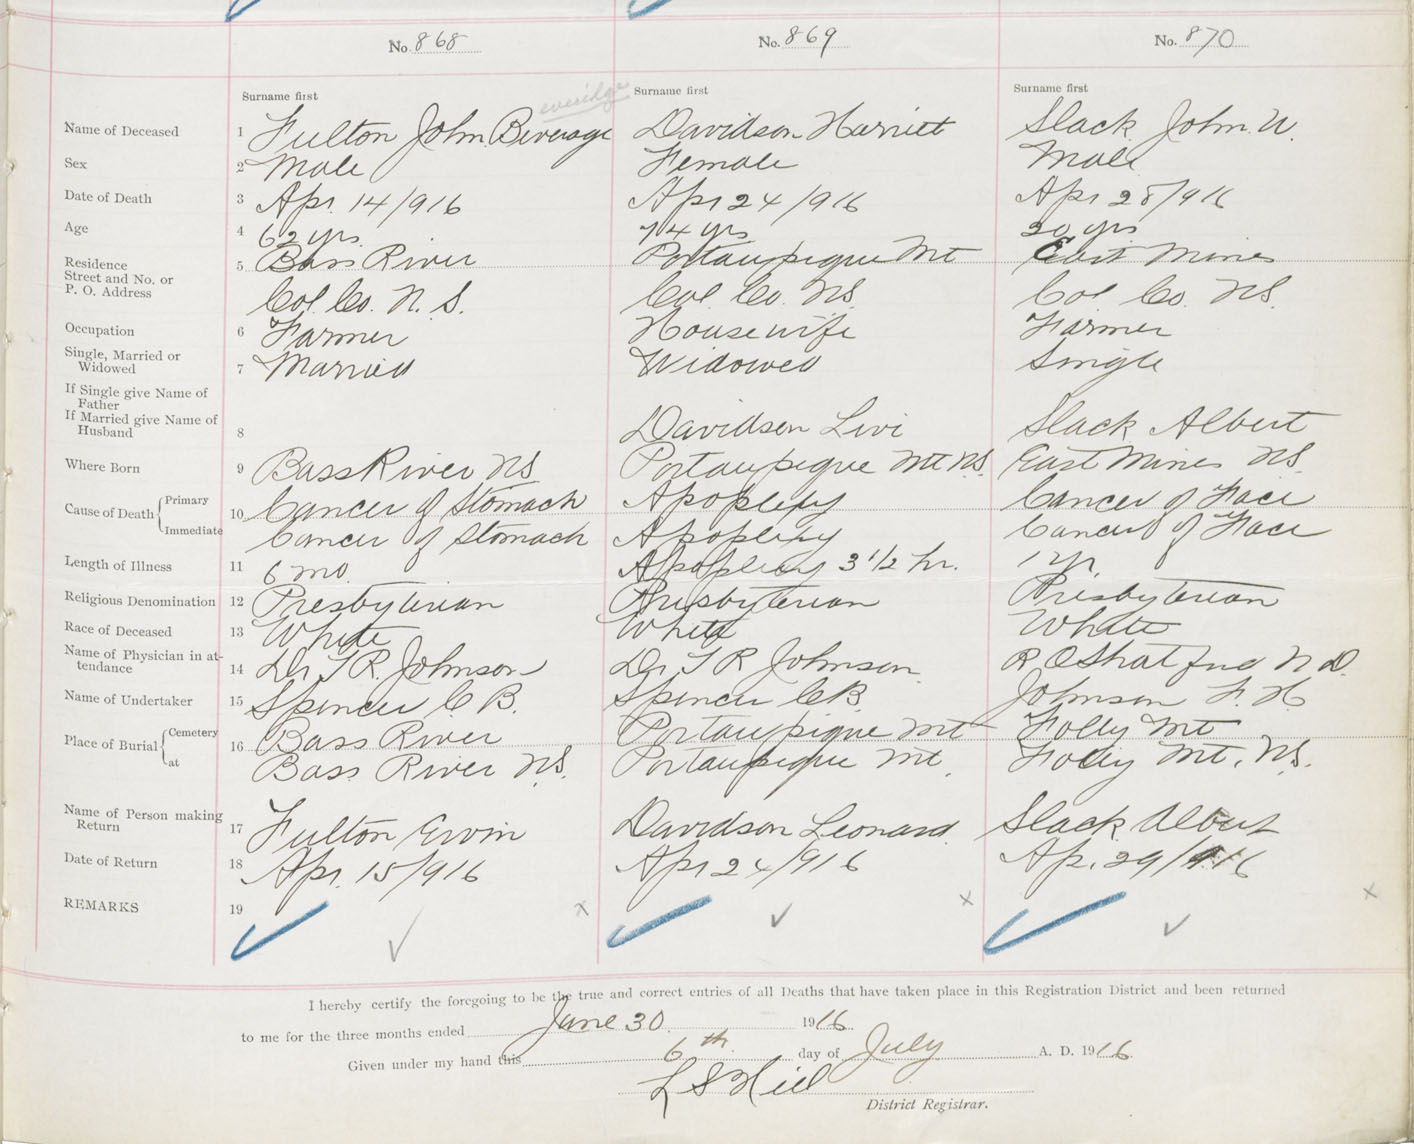 No. 868 No. 869 No. 870
Surname first Surname first Surname first
everidge
Name of Deceased 1 Fulton John Beverage Davidson Harriett Slack John W.
Sex 2 Male Female Male
Date of Death 3 Apr. 14/916 Apr 24/916 Apr 28/916
Age 4 62 yrs. 74 yrs 20 yrs
Residence 5 Bass River Portaupique Mt East Mines
Street and No. or
P. O. Address Col. Co. N. S. Col Co. NS. Col Co. NS.
Occupation 6 Farmer Housewife Farmer
Single, Married or
Widowed 7 Married Widowed Single
If Single give Name of
Father
If Married give Name of
Husband 8 Davidson Livi Slack Albert
Where Born 9 Bass River NS Portaupique Mt NS. East Mines NS.
Cause of Death Primary 10 Cancer of Stomach Apoplexy Cancer of Face
Immediate Cancer of Stomach Apoplexy Cancer of Face
Length of Illness 11 6 mo. Apoplexy 3 1/2 hr. 1 yr.
Religious Denomination 12 Presbyterian Presbyterian Presbyterian
Race of Deceased 13 White White White
Name of Physician in at-
tendance 14 Dr T. R. Johnson Dr T R Johnson R O M D.
Name of Undertaker 15 Spencer C B. Spencer C B. Johnson F. H
Place of Burial Cemetery 16 Bass River Portaupique Mt Folly Mt
at Bass River NS. Portaupique Mt. Folly Mt. NS.
Name of Person making
Return 17 Fulton Ervin Davidson Leonard Slack Albert
Date of Return 18 Apr. 15/916 Apr 24/916 Ap. 29/916
REMARKS 19
I hereby certify the foregoing to be the true and correct entries of all Deaths that have taken place in this Registration District and been returned
to me for the three months ended June 30. 1916.
Given under my hand this 6th day of July A. D. 1916
L S Hill
District Registrar.